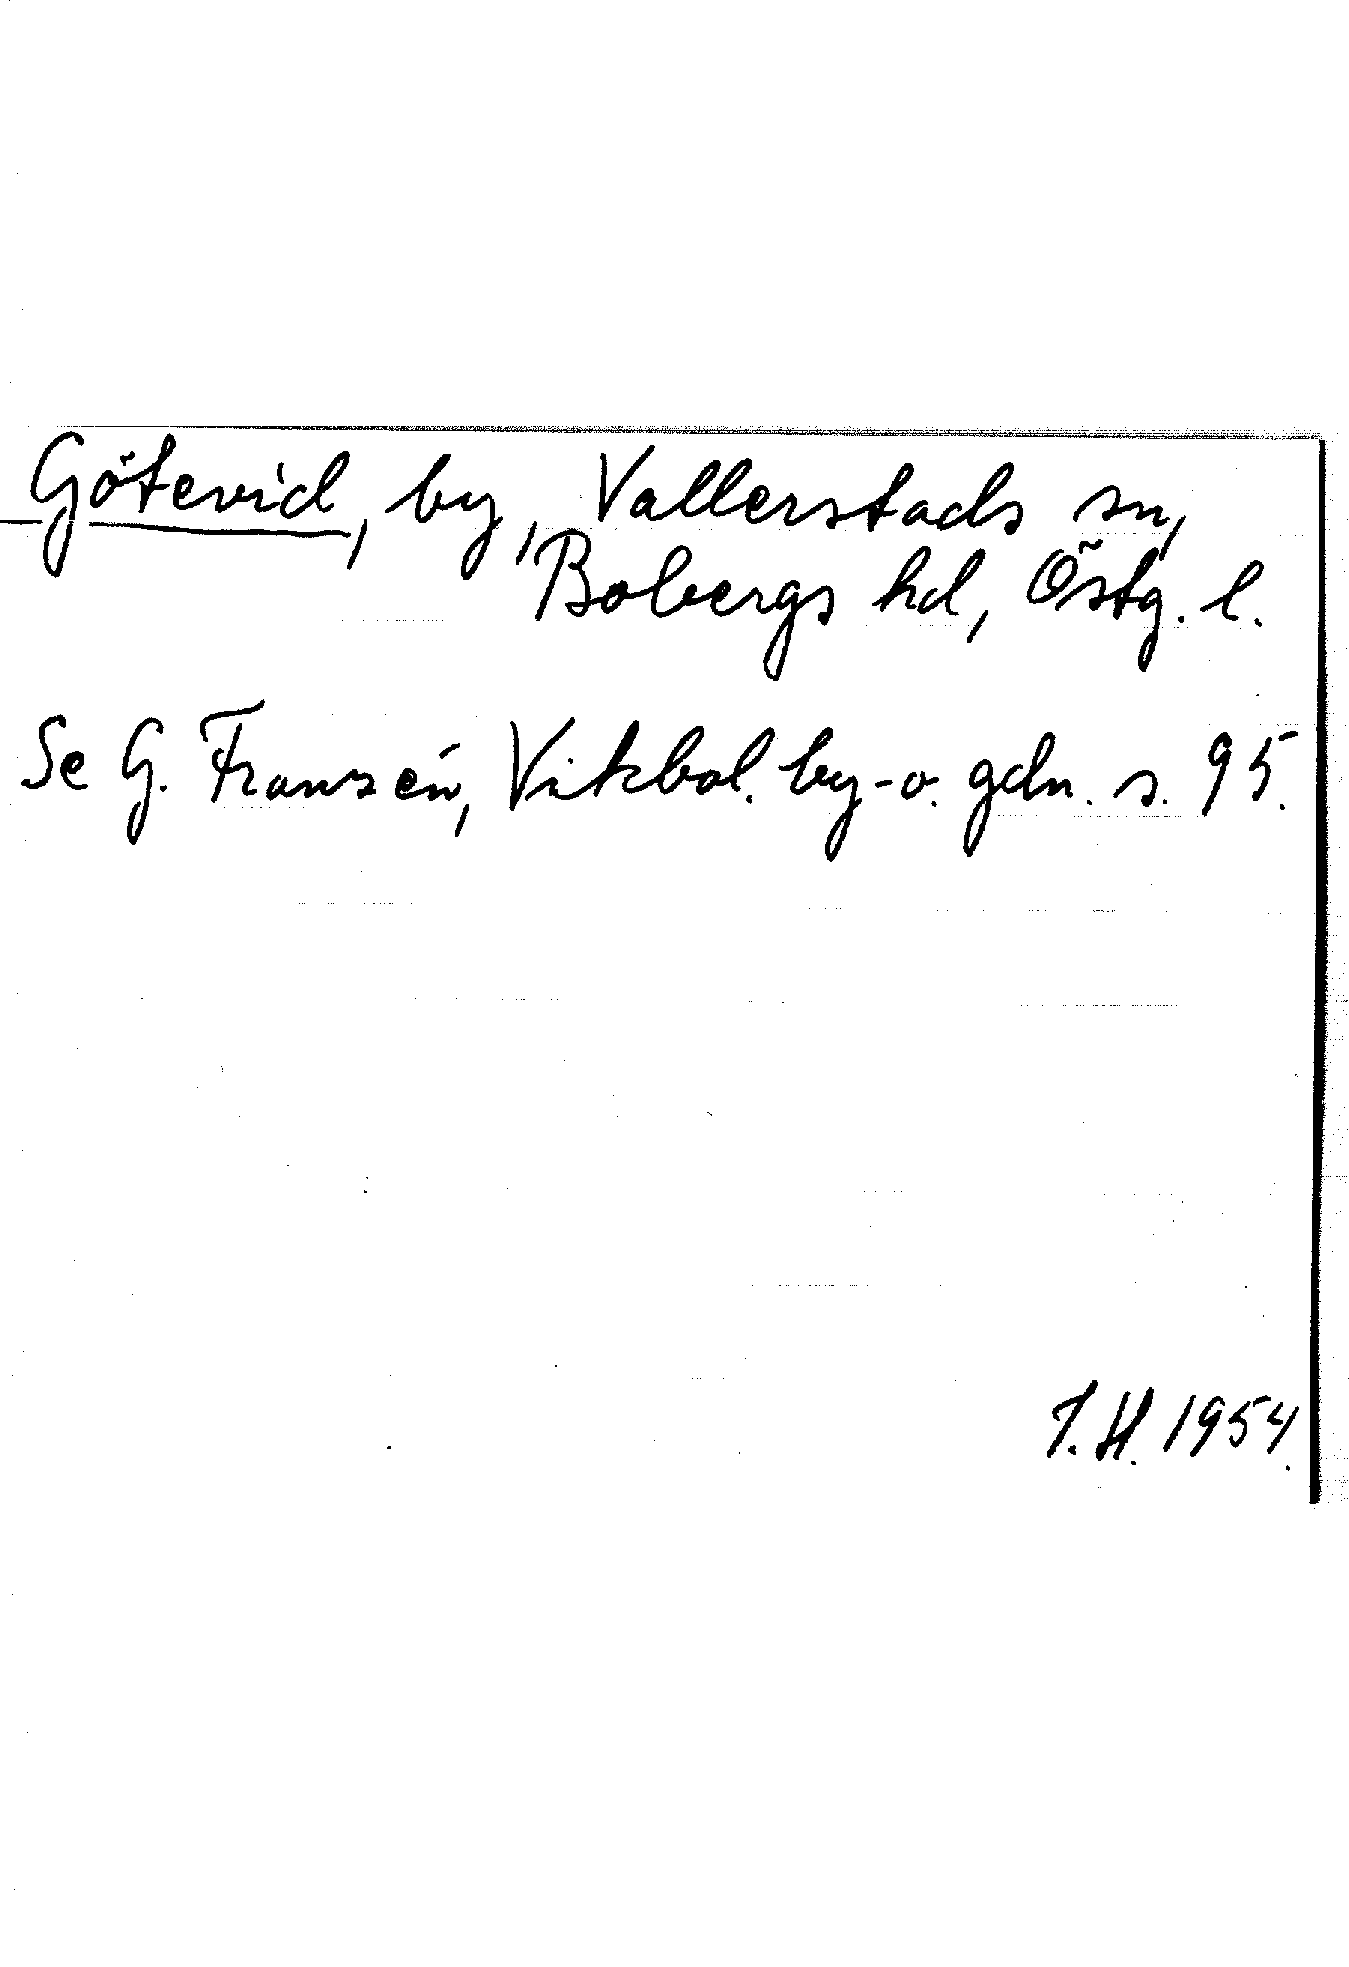 Götevid, by, Vallerstads sn,
Bobergs hd, Östg. l.
Se G. Franzén, Vikbol. by- o. gdn. s. 95.
J.H. 1954.